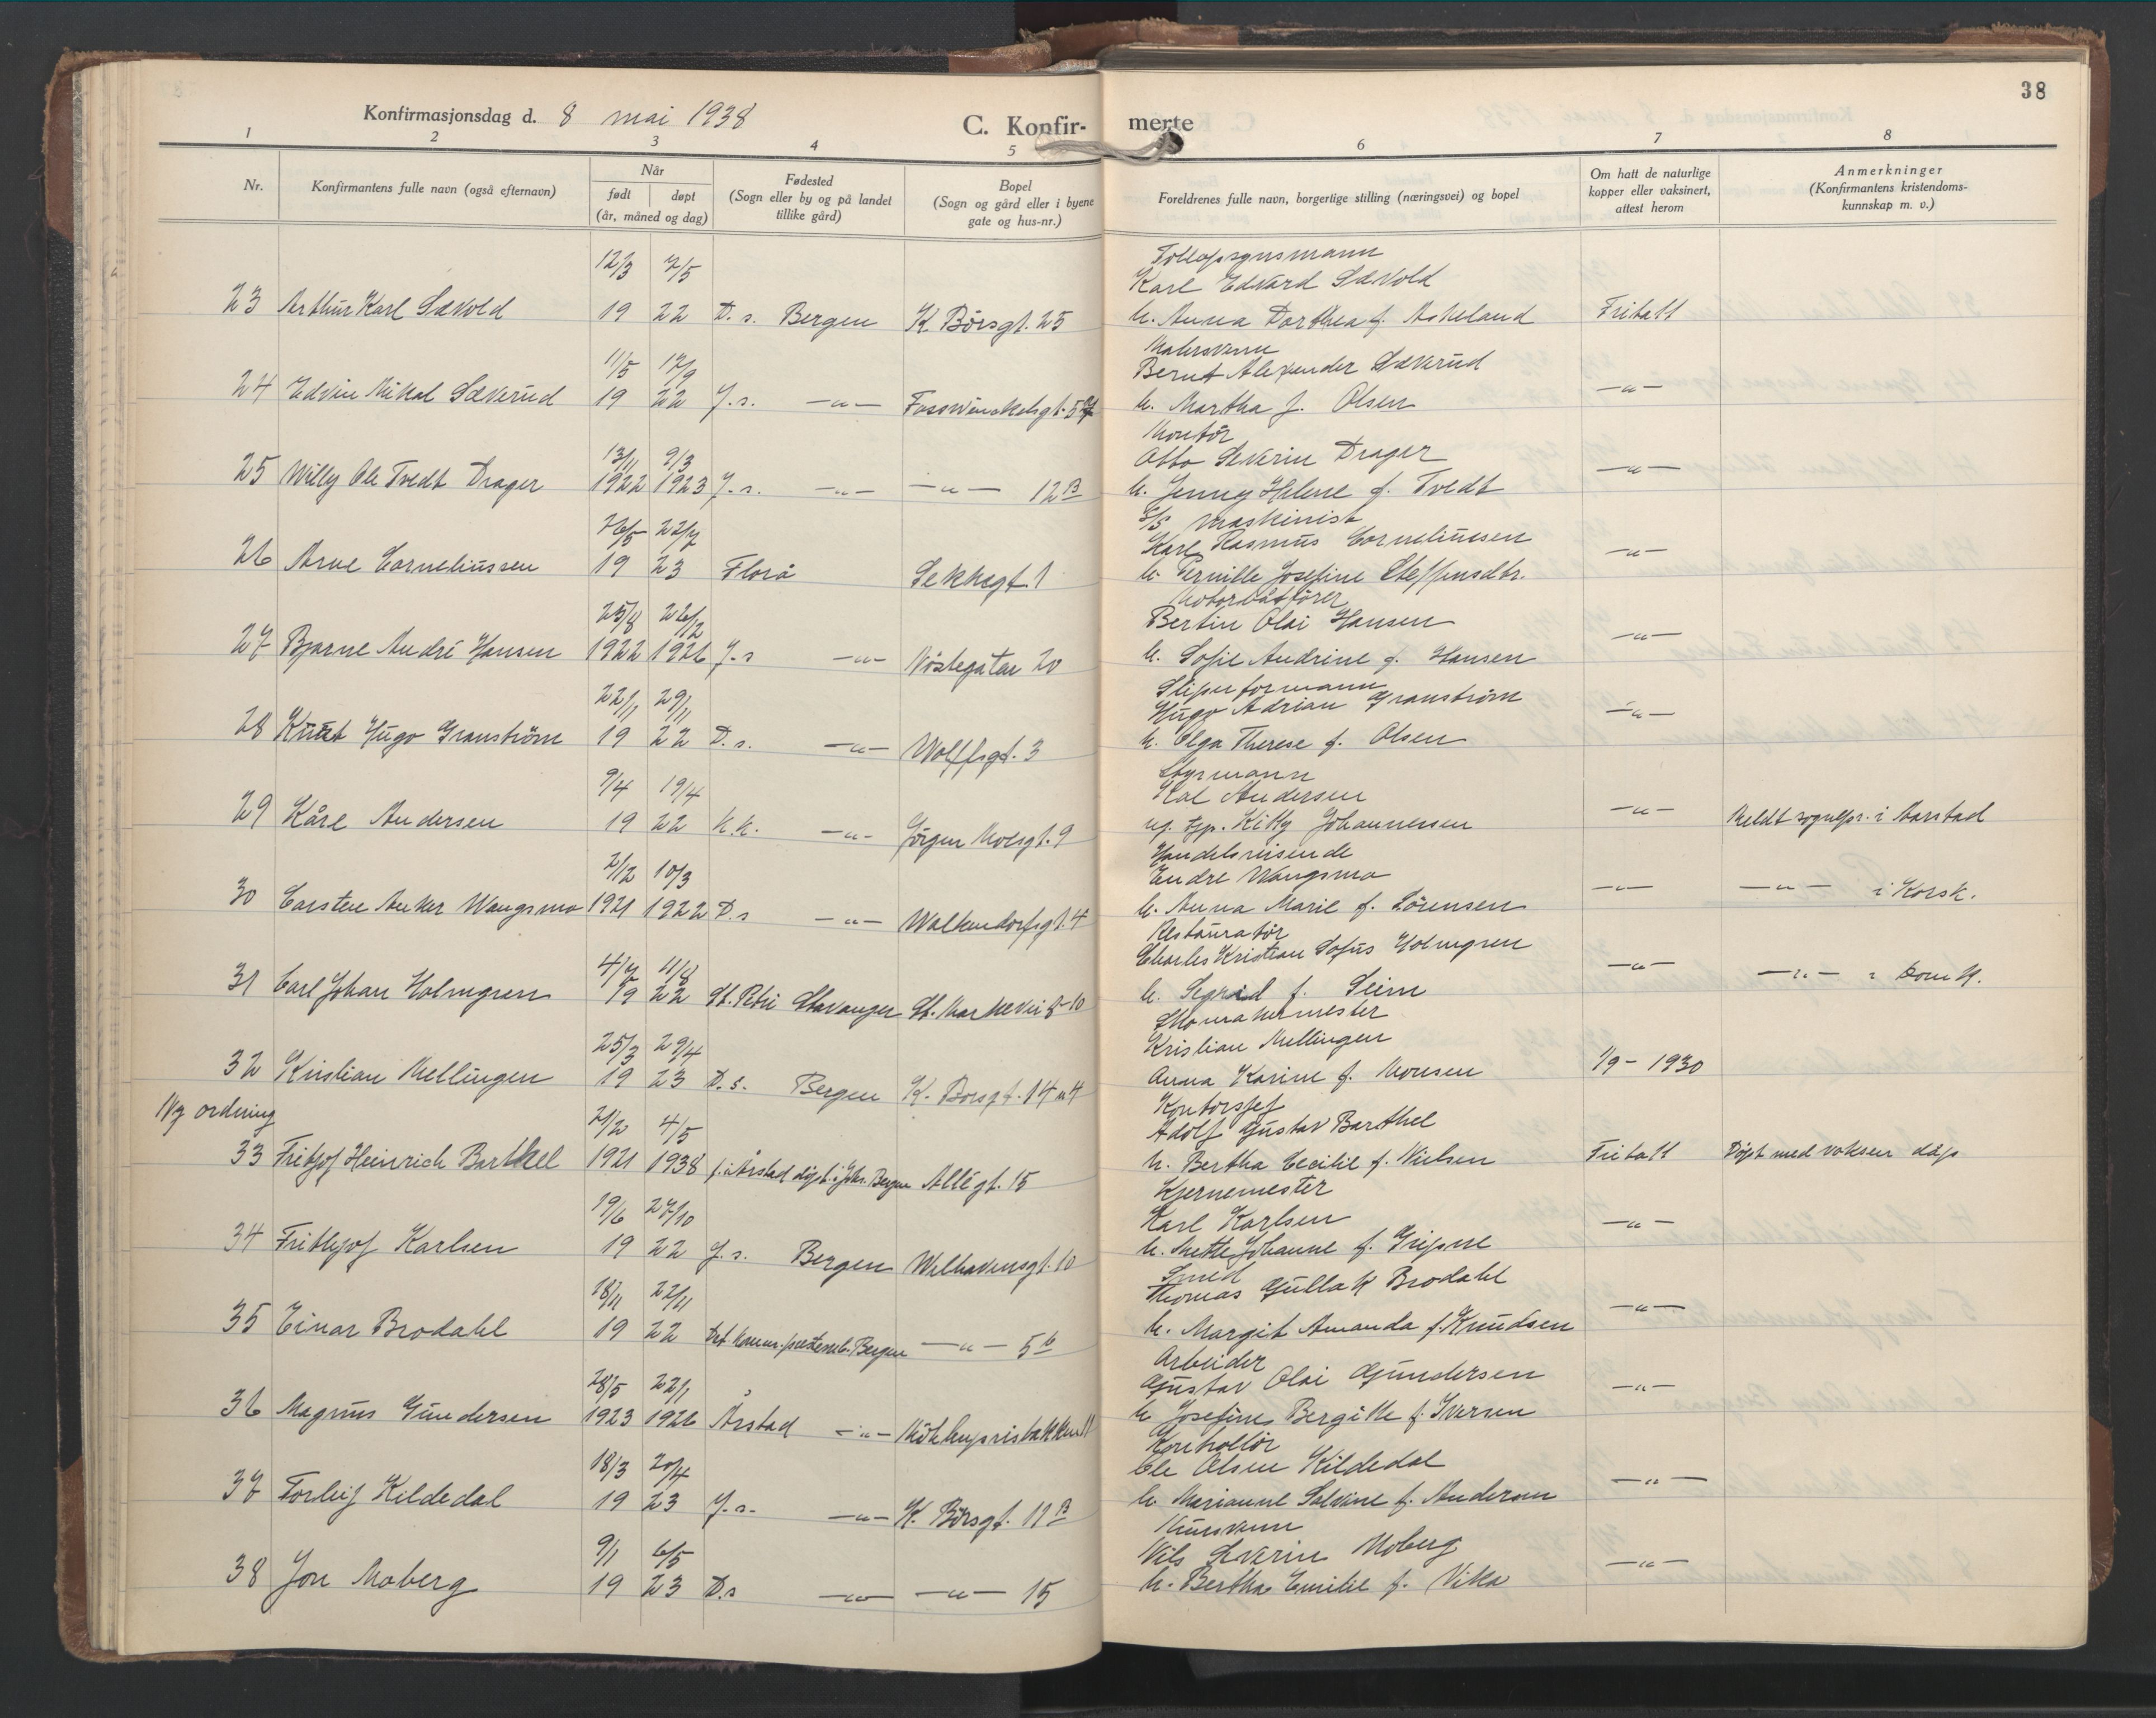 38
Konfirmasjonsdag d. 8 mai 1938
C. Konfir- merte
1 2 3 4 5 6 7 8
Nr.
Konfirmantens fulle navn (også efternavn)
Når
født døpt
(år, måned og dag)
Fødested
(Sogn eller by og på landet
tillike gård)
Bopel
(Sogn og gård eller i byene
gate og hus-nr.)
Foreldrenes fulle navn, borgertige stilling (næringsvei) og bopel
Om hatt de naturlige
kopper eller vaksinert,
attest herom
Anmerkninger
(Konfirmantens kristendoms-
kunnskap m. v.)
12/3 7/5 Tollopsynsmann
Karl Edvard Sævold
23 Arthur Karl Sævold 19 22 D. s. Bergen K. Børsgt. 25 h. Anna Dorthea f. Askeland Fritatt
11/5 17/9 Malersvenn
Bernt Alexander Sæverud
24 Edvin Mikal Sæverud 19 22 J. s. —„— Fosswinckelsgt. h. Martha f. Olsen —„—
13/11 9/3 Montör
Otto Severin Drager
25 Willy Ole Tvedt Drager 1922 1923 J. s. —„— —„— 12B h. Jenny Helene f. Tvedt —„—
26/5 22/7 D/S maskinist
Karl Rasmus Corneliussen
26 Arne Corneliussen 19 23 Florø Lekhegt 1 h. Pernille Josefine Steffensdtr. —„—
25/8 26/12 Motorbåtförer
Bertin Olai Hansen
27 Bjarne André Hansen 1922 1926 J. s —„— Nöstegaten 20 h. Sofie Andrine f. Hansen —„—
22/11 29/11 Sliperformann
Hugo Adrian Granström
28 Knut Hugo Granström 19 22 D. s. —„— Wolffsgt. 3 h. Olga Therese f. Olsen —„—
9/4 19/4 Styrmann
Kal Andersen
29 Kåre Andersen 19 22 K.k. —„— Jörgen Moesgt. 9 ug. tjp. Kitty Johannessen —„— Meldt sognepr. i Aarstad
2/12 10/3 Handelsreisende
Endre Wangsmo
30 Carsten Anker Wangsmo 1921 1922 D. s —„— Walkendorfsgt. 4 h. Anna Marie f. Sörensen —„— —„— i Korsk.
4/7 11/8 Restauratör
Charles Kristian Sofus Holmgren
31 Carl Johan Holmgren 19 22 St. Petri Stavanger St. Markevei 8-10 h. Sigrid f. Seim —„— —„— i Dom k.
25/3 29/4 Skomakermester
Kristian Mellingen
32 Kristian Mellingen 19 23 D. s. Bergen K. Börsgt. 14 Anna Karine f. Monsen 1/9 - 1930
Ny ordning
21/2 4/5 Kontorsjef
Adolf Gustav Barthel
33 Fritjof Heinrich Barthel 1921 1938 f. i Årstad döpt i Joh. Bergen Allégt. 15 h. Bertha Cecilie f. Nielsen Fritatt Döpt med voksen dåp
19/6 27/10 Kjernemester
Karl Karlsen
34 Frithjof Karlsen 19 22 J. s. Bergen Welhavensgt. 10 h. Mette Johanne f. Gripne —„—
18/11 22/11 Smed
Thomas Gullak Brodahl
35 Einar Brodahl 19 22 Bergen —„— 5b h. Margit Amanda f. Knudsen —„—
28/5 22/1 Arbeider
Gustav Olai Gundersen
36 Magnus Gundersen 1923 1926 Årstad —„— Möhlenprisbakken 11 h Josefine Bergitte f. Iversen —„—
18/3 20/4 Kontrollör
Ole Olsen Kildedal
37 Torleif Kildedal 19 23 J. s. —„— K. Börsgt. 11B h. Marianne Salvine f. Andersen —„—
9/1 6/5 Mursvenn
Nils Severin Moberg
38 Jon Moberg 19 23 D.s —„— —„— 15 h. Bertha Emilie f. Vika —„—